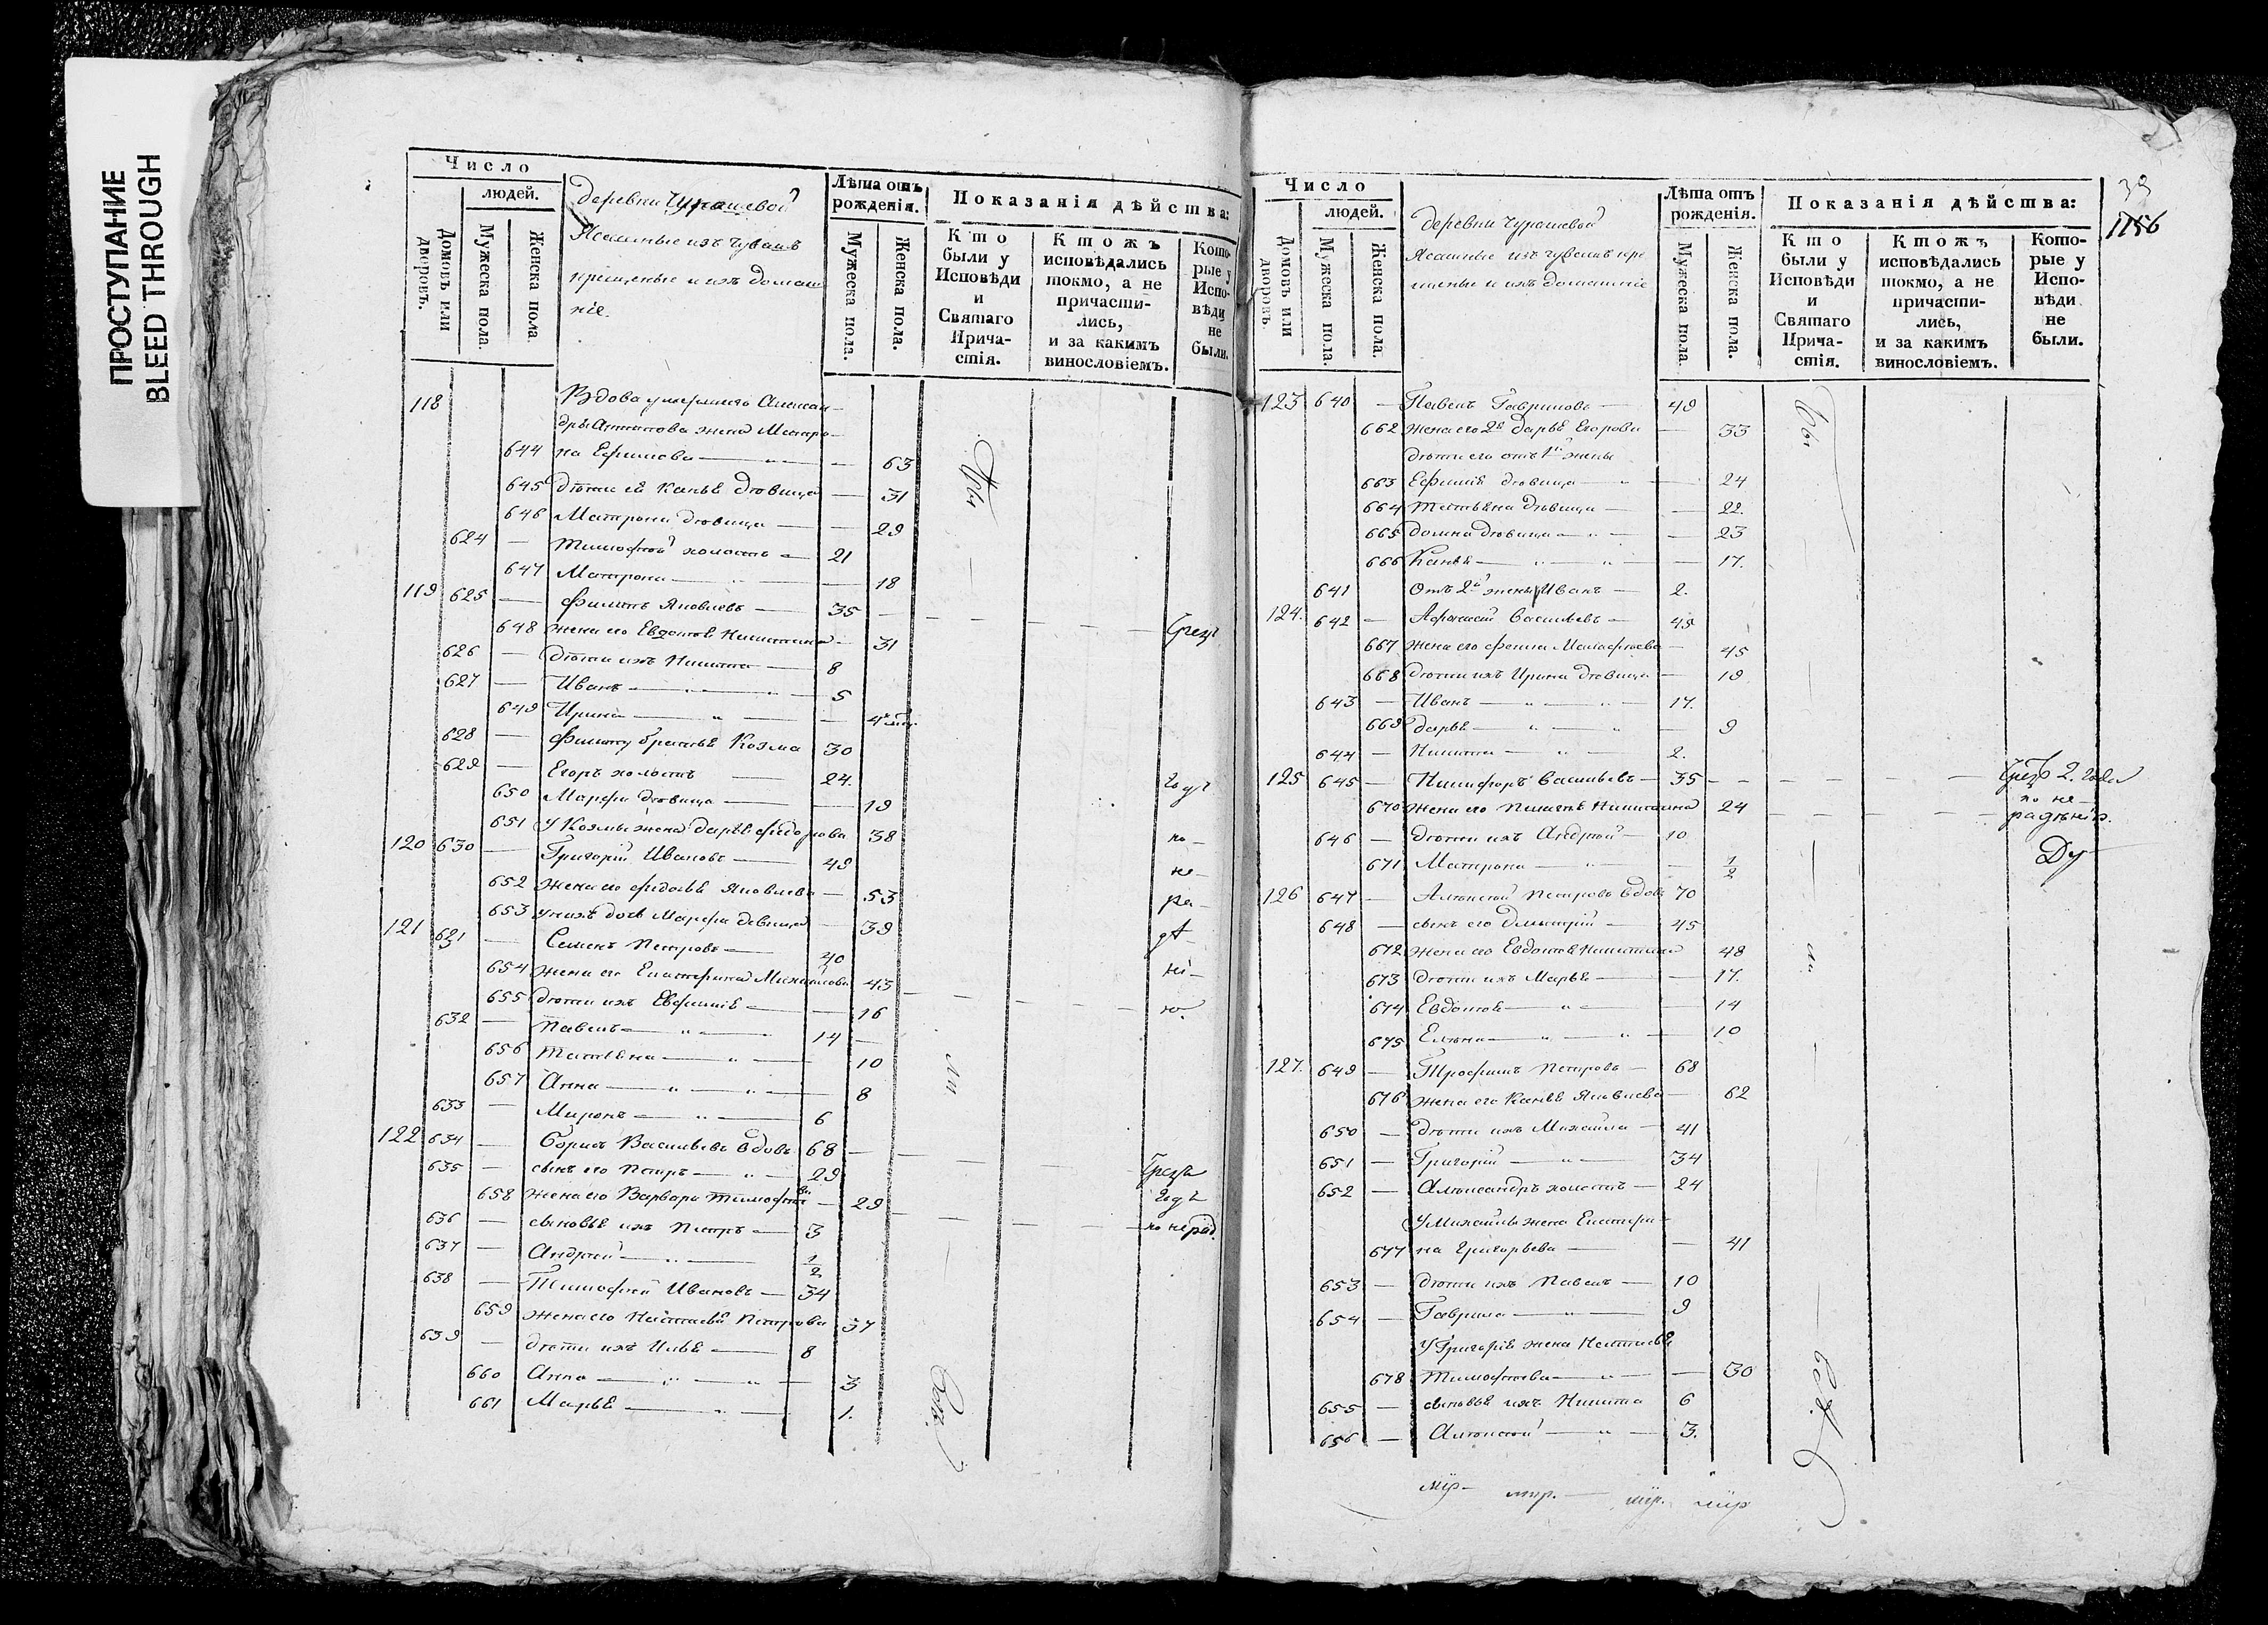 ПРОСТУПАНИЕ
BLEED THROUGH
Число
людей.
Домовъ или дворовъ.
Мужеска пола.
Женска пола
деревни Чурашевой
Ясашные изъ чувашъ
крещеные и ихъ домаш
ніе.
Лѣта отъ рожденія.
Мужеска пола.
Женска пола.
Показанія дѣйства:
Кто были у Исповѣди и Святаго Прича-стія.
Ктожъ исповѣдались токмо, а не причасти-лись, и за какимъ винословіемъ.
Кото-рые у Испо-вѣди не были.
118 Вдова умершаго Алексан-
дры Антипова жена Матро-
644 на Ефимова — „ — — 63
645 дѣти ея Касья дѣвица — 31
646 Матрона дѣвица — — 29
624 — Тимофей холостъ — 21
647 Матрона — „ — — 18
119 625 — Филипъ Яковлевъ — 35 — — — — — Чрезъ
648 жена его Евдокія Никитина — 31
626 — дѣти ихъ Никита — 8
627 — Иванъ — „ — „ — 5
649 Ирина — „ — — 4
628 — Филипу братья Козма 30
629 — Егоръ холостъ — 24. годъ
650 Марфа дѣвица — — 19
651 У Козмы жена Дарья Федорова 38 по-
120 630 — Григорій Ивановъ — 49 не-
652 жена его Федосья Яковлева — 53 ра-
653 у нихъ дочь Марфа девица — 39 дѣ-
121 631 — Семенъ Петровъ — 40 ні-
654 жена его Екатерина Михайлова 43 — — — — ю.
655 дѣти ихъ Евфимія — — 16
632 — Павелъ — „ — 14 —
656 Татьяна — „ — 10
657 Анна — „ — „ — 8
633 — Миронъ — „ — 6
122 634 — Борисъ Васильевъ вдовъ 68 — — — — Чрезъ
635 — сынъ его Петръ — „ — 29 годъ
658 жена его Варвара Тимофѣева — 29 — — — — по нерад.
636 — сыновья ихъ Петръ — 3
637 — Андрей — „ — 1/2
638 — Тимофей Ивановъ — 34
659 жена его Настасья Петрова 37
639 — дѣти ихъ Илья — 8
660 Анна — „ — „ — 3
661 Марья — „ — 1.
Число
людей.
Домовъ или дворовъ.
Мужеска пола.
Женска пола.
деревни Чурашевой
Ясашные изъ чувашъ кре
щеные и ихъ домашніе
Лѣта отъ рожденія.
Мужеска пола
Женска пола.
Показанія дѣйства:
Кто были у Исповѣди и Святаго Прича-стія.
Ктожъ исповѣдались токмо, а не причасти-лись, и за какимъ винословіемъ.
Кото-рые у Испо-вѣди не были.
39
1156
123 640 — Павелъ Гавриловъ — 49 Бы
662 жена его 2я Дарья Егорова — 33
дѣти его отъ 1й жены
663 Ефимія дѣвица — „ — 24
664 Татьяна дѣвица — — 22.
665 Домна дѣвица — „ — — 23
666 Касья — „ — „ — — 17.
641 отъ 2й жены Иванъ — 2.
124. 642 — Афанасій Васильевъ — 45
667 жена его Фекла Малафеева — 45
668 дѣти ихъ Ирина дѣвица — 19
643 — Иванъ — „ — „ — 17.
669 Дарья — „ — „ — — 9
644 — Никита — „ — 2.
125 645 — Никифоръ Васильевъ — 35 — — — — — Чрезъ 2. года
по не-
670 жена его Пелагея Никитина 24 — — — — радѣнію.
646 — дѣти ихъ Андрей — 10
671 Матрона — „ — — 1/2
126 647 — Алексѣй Петровъ вдовъ 70
648 — сынъ его Дмитрій — 45 ли
672 жена его Евдокія Никитина 48
673 дѣти ихъ Марья — — 17.
674 Евдокія — „ — — 14
675 Елена — „ — „ — 10
127. 649 — Трофимъ Петровъ — 68
676 жена его Касья Яковлева — 62
650 — дѣти ихъ Михайла — 41
651 — Григорій — „ — 34
652 — Александръ холостъ — 24
У Михайлы жена Екатери-
677 на Григорьева — — 41
653 — дѣти ихъ Павелъ — 10
654 — Гаврила — „ — 9
У Григорія жена Настасья
678 Тимофеева — „ — — 30
655 — сыновья ихъ Никита 6
656 — Алексѣй — „ — 3.